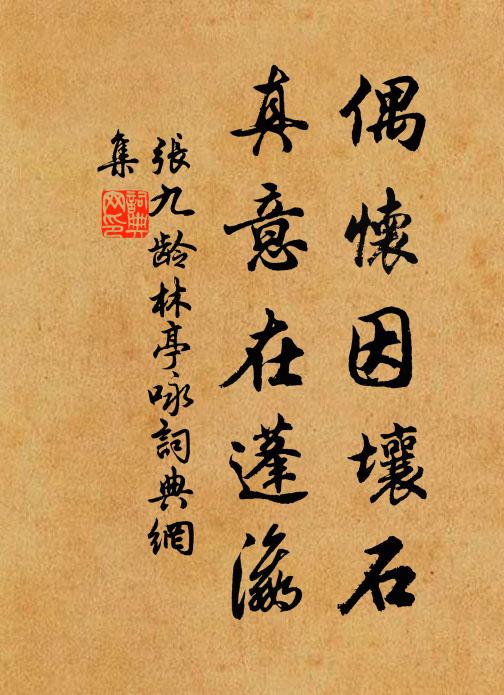 偶懷因壤石
真意在蓬瀛
張九龄林亭咏詞典網
集
詞典网印